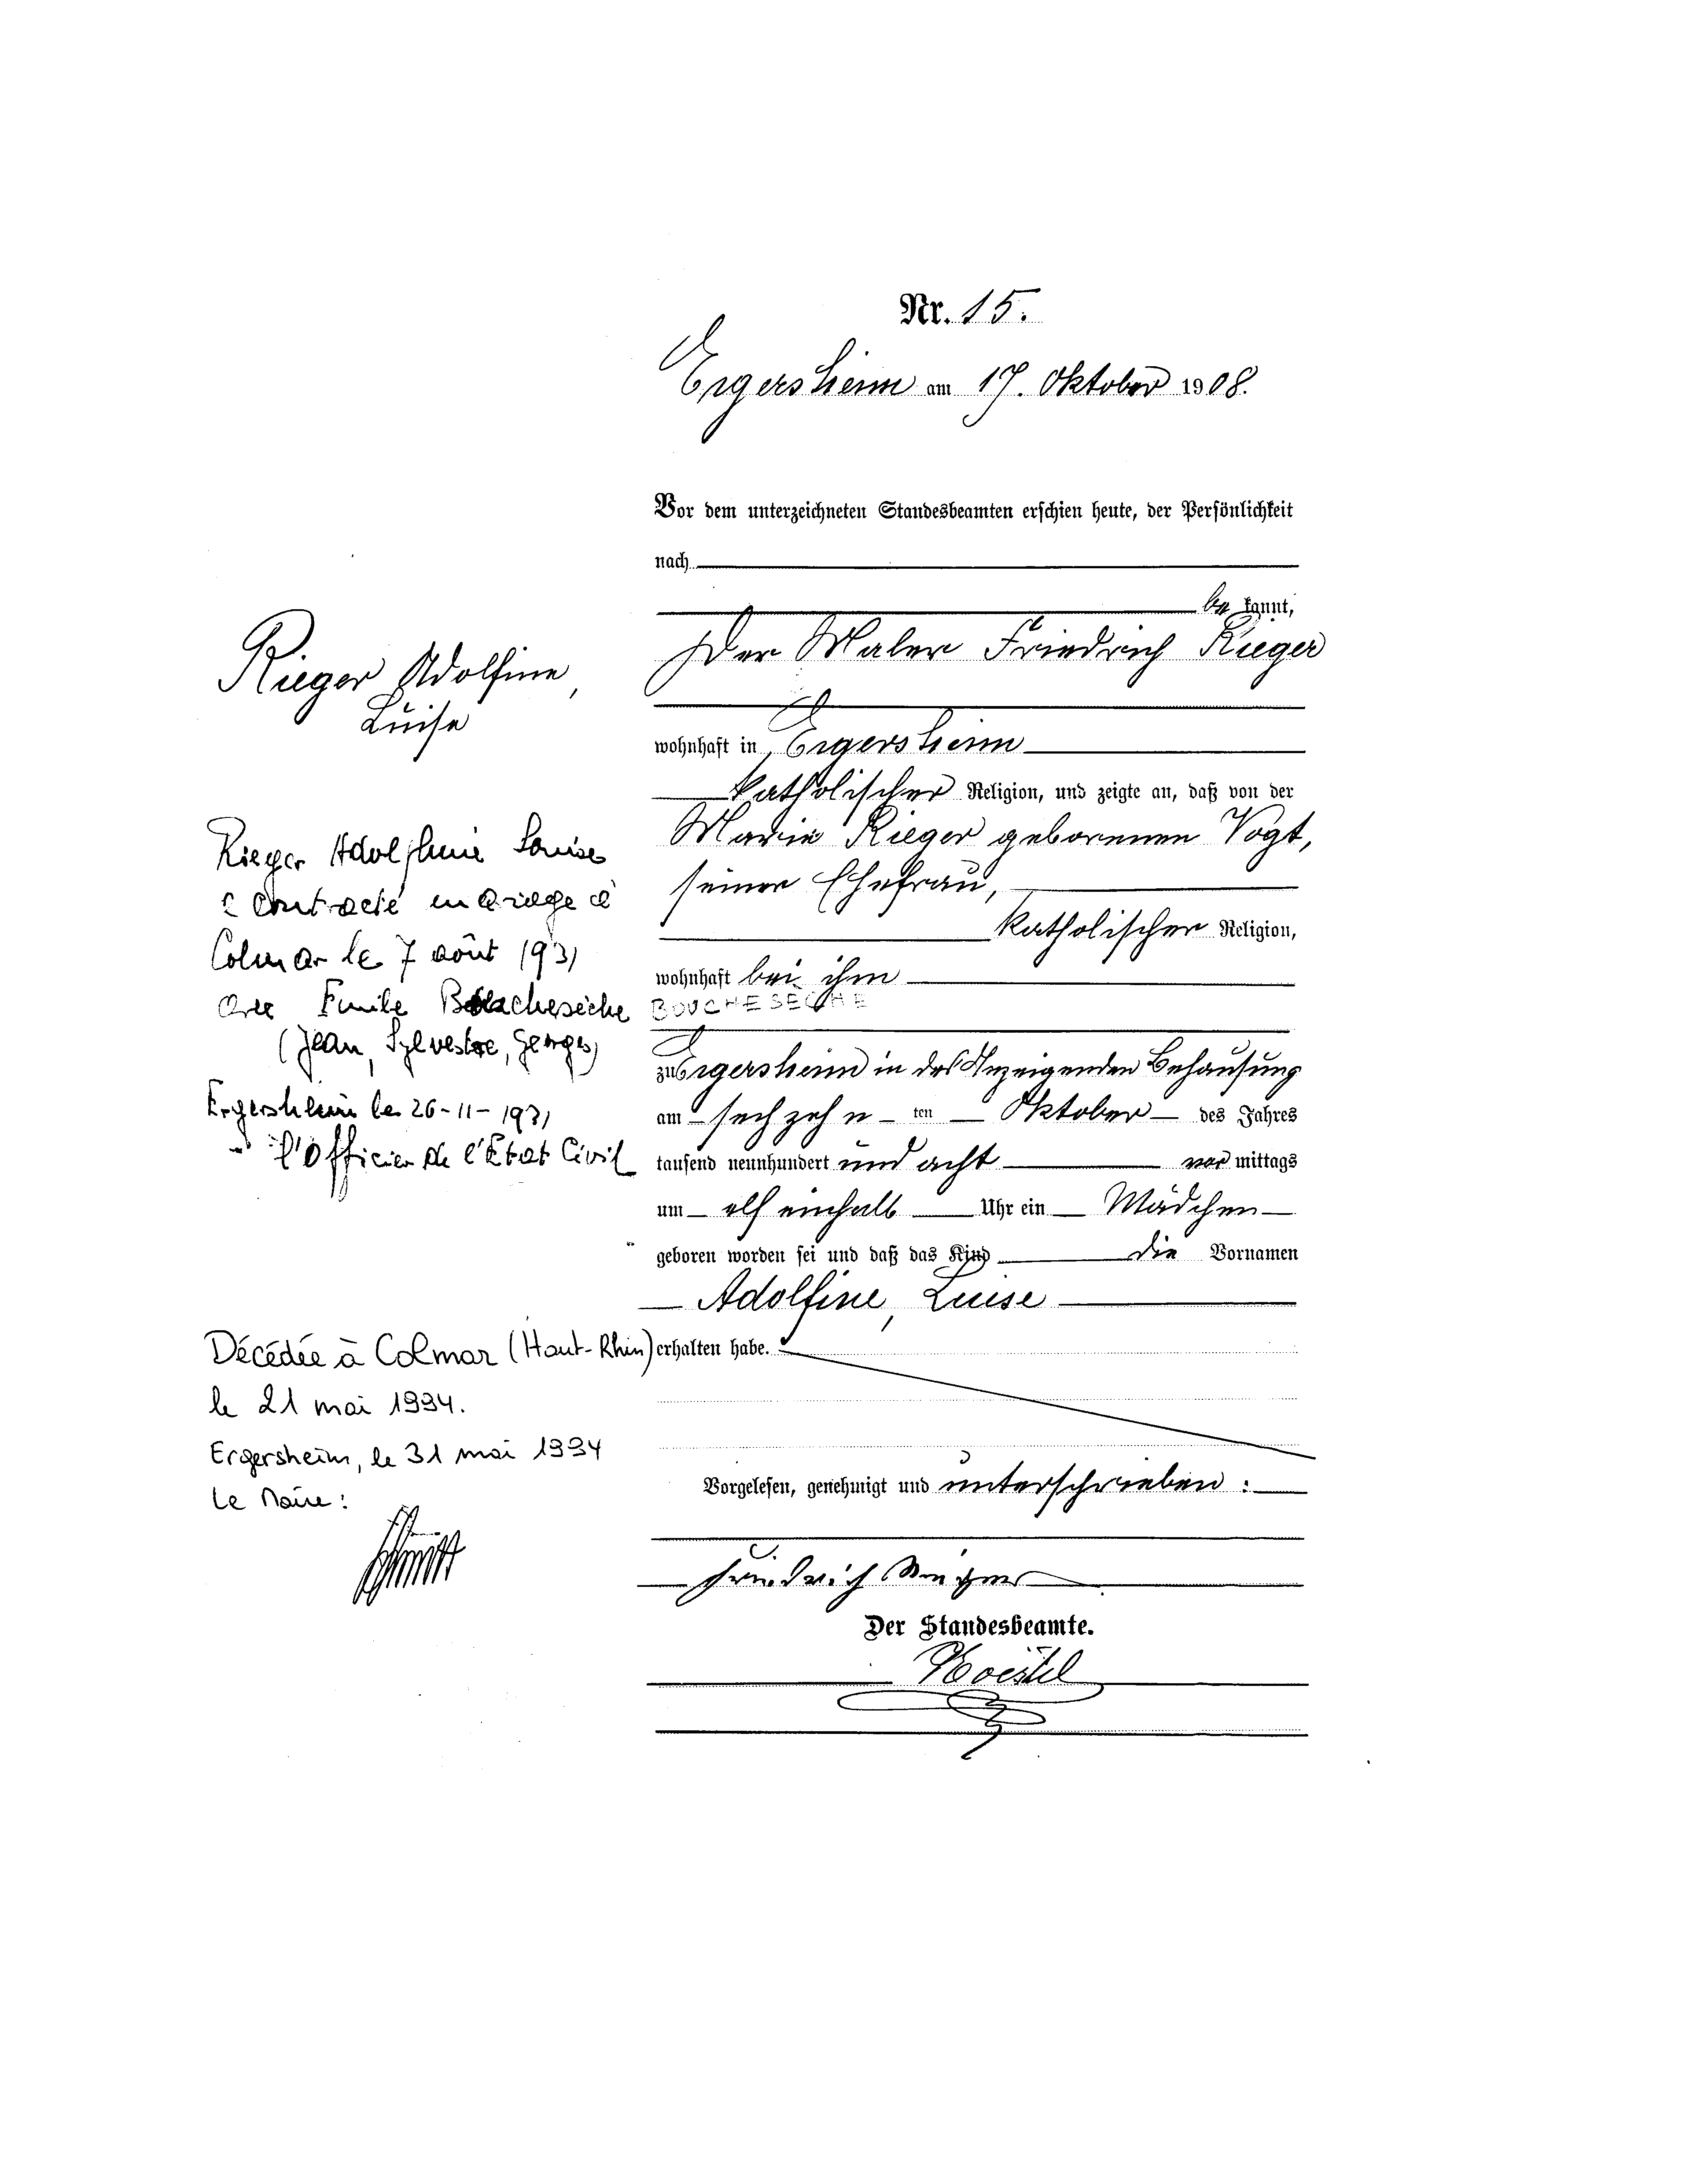 Nr. 15.
Ergersheim am 17. Oktober 1908.
Vor dem unterzeichneten Standesbeamten erschien heute, der Persönlichkeit
nach
be kannt,
Der Maler Friedrich Rieger
wohnhaft in Ergersheim
katholischer Religion, und zeigte an, daß von der
Marie Rieger geborenen Vogt,
seiner Ehefrau,
katholischer Religion,
wohnhaft bei ihm
zu Ergersheim in des Anzeigenden Behausung
am sechzehn ten Oktober des Jahres
tausend neunhundert und acht vor mittags
um elf einhalb Uhr ein Mädchen
geboren worden sei und daß das Kind die Vornamen
Adolfine, Luise
erhalten habe.
Vorgelesen, genehmigt und unterschrieben:
Friedrich Rieger
Der Standesbeamte.
Rieger Adolfine,
Luise
Rieger Adolphine Louise
a contracté mariage à
Colmar le 7 août 1931
avec Emile Bouchesèche
BOUCHESECHE
(Jean, Sylvestre, Georges)
Ergersheim le 26-11-1931
l'Officier de l'Etat Civil
Décédée à Colmar (Haut-Rhin)
le 21 mai 1994.
Ergersheim, le 31 mai 1994
Le Maire: